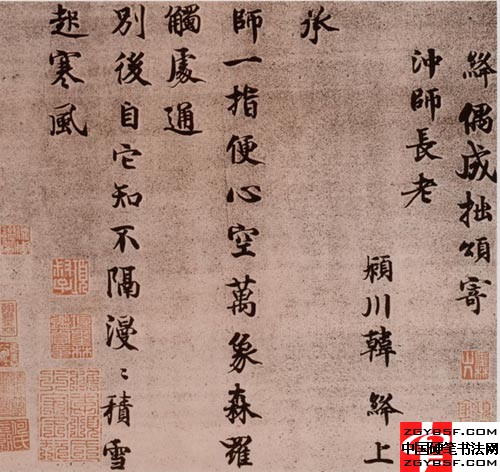 絳偶成拙頌寄
沖師長老
潁川韓絳上
承
師一指便心空萬象森羅
觸處通
別後自它知不隔漫〻積雪
起寒風
ZGYBSF.COM
中国硬笔书法网
ZGYBSF.COM